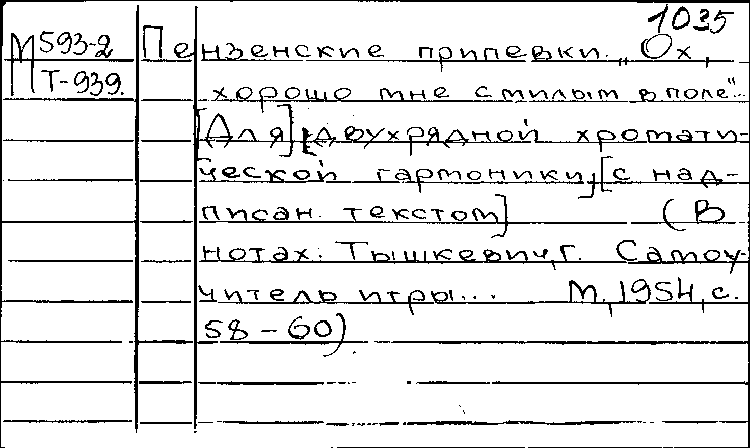 1035
М 593-2
Т-939.
Пензенские припевки. „Ох,
хорошо мне с милым в поле"..
[Для] двухрядной хромати-
ческой гармоники, [с над-
писан. текстом] (В
нотах: Тышкевич, Г. Самоу-
читель игры... М., 1954, с.
58-60).